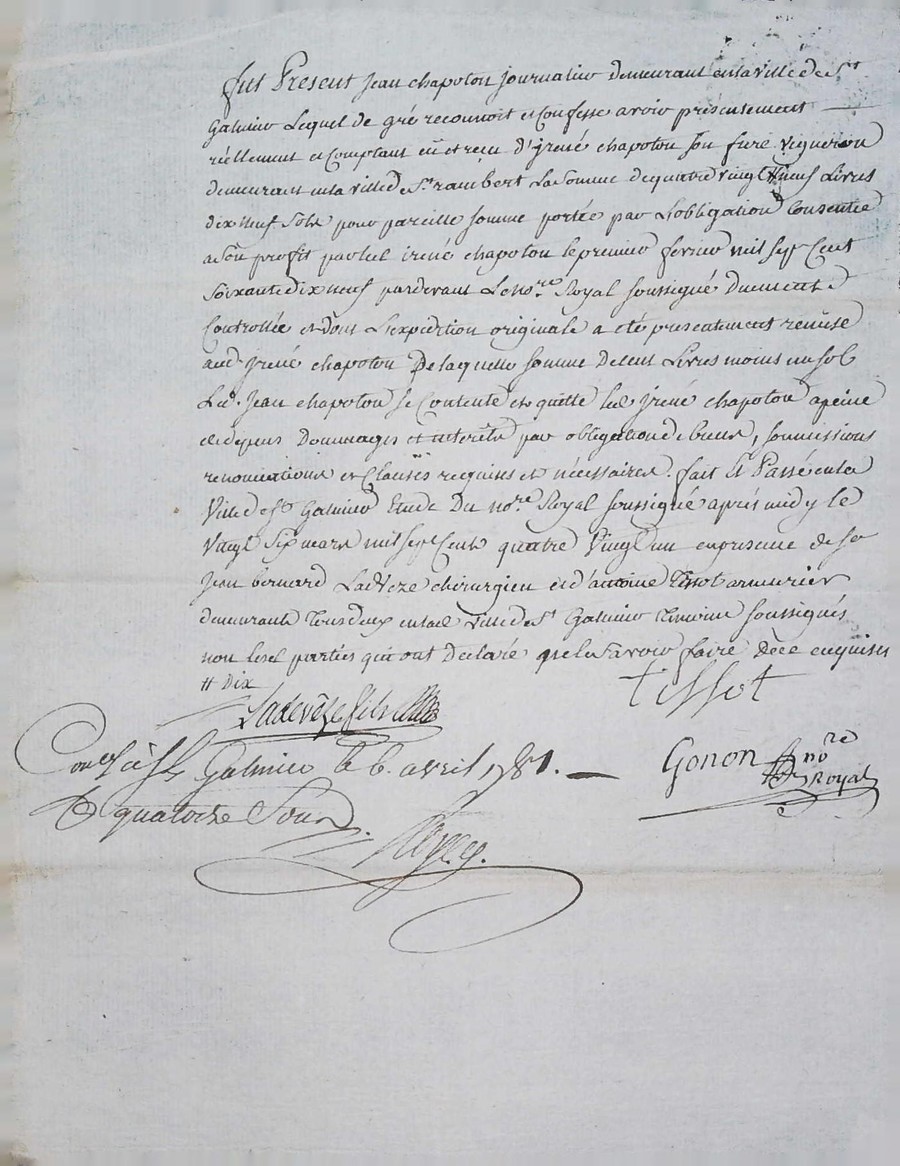 fut Present Jean chapoton journalier demeurant en la ville de St
Galmier Lequel de gré reconnoit et Confesse avoir présentement
réellement et Comptant eü et reçu d'jrené chapoton son frere vigneron
demeurant en la ville de St. rambert La somme de quatre vingt # neuf Livres
dix neuf sols pour pareille somme portée par L'obligation Consentie
a son profit par led irené chapoton le premier fevrier mil sept Cent
soixante dix neuf pardevant Le nore. Royal soussigné Duement
Controllée et dont L'expedition originale a été presentement remise
aud. jrené chapoton De laquelle somme de Cent Livres moins un sol
Led. Jean chapoton se Contente et quitte led jrené chapoton a peine
de depens Dommages et interêts par obligation de biens, soumissions
renonciations et Clauses requises et nécessaires. fait Et Passé en la
Ville de St Galmier Etude Du nore. Royal soussigné après midy le
Vingt Six mars mil sept Cent quatre Vingt un en presence de sr
Jean bernard LadeVeze chirurgien et d'antoine Tissot armurier
demeurants Tous deux en lad. ville de St Galmier Temoins soussignés
non lesd parties qui ont Declaré ne le savoir faire De ce enquises
# Dix
Ladevèze fils tissot
Conllé à St Galmier le 6. avril 1781. Gonon nore Royal
quatorze Sous.